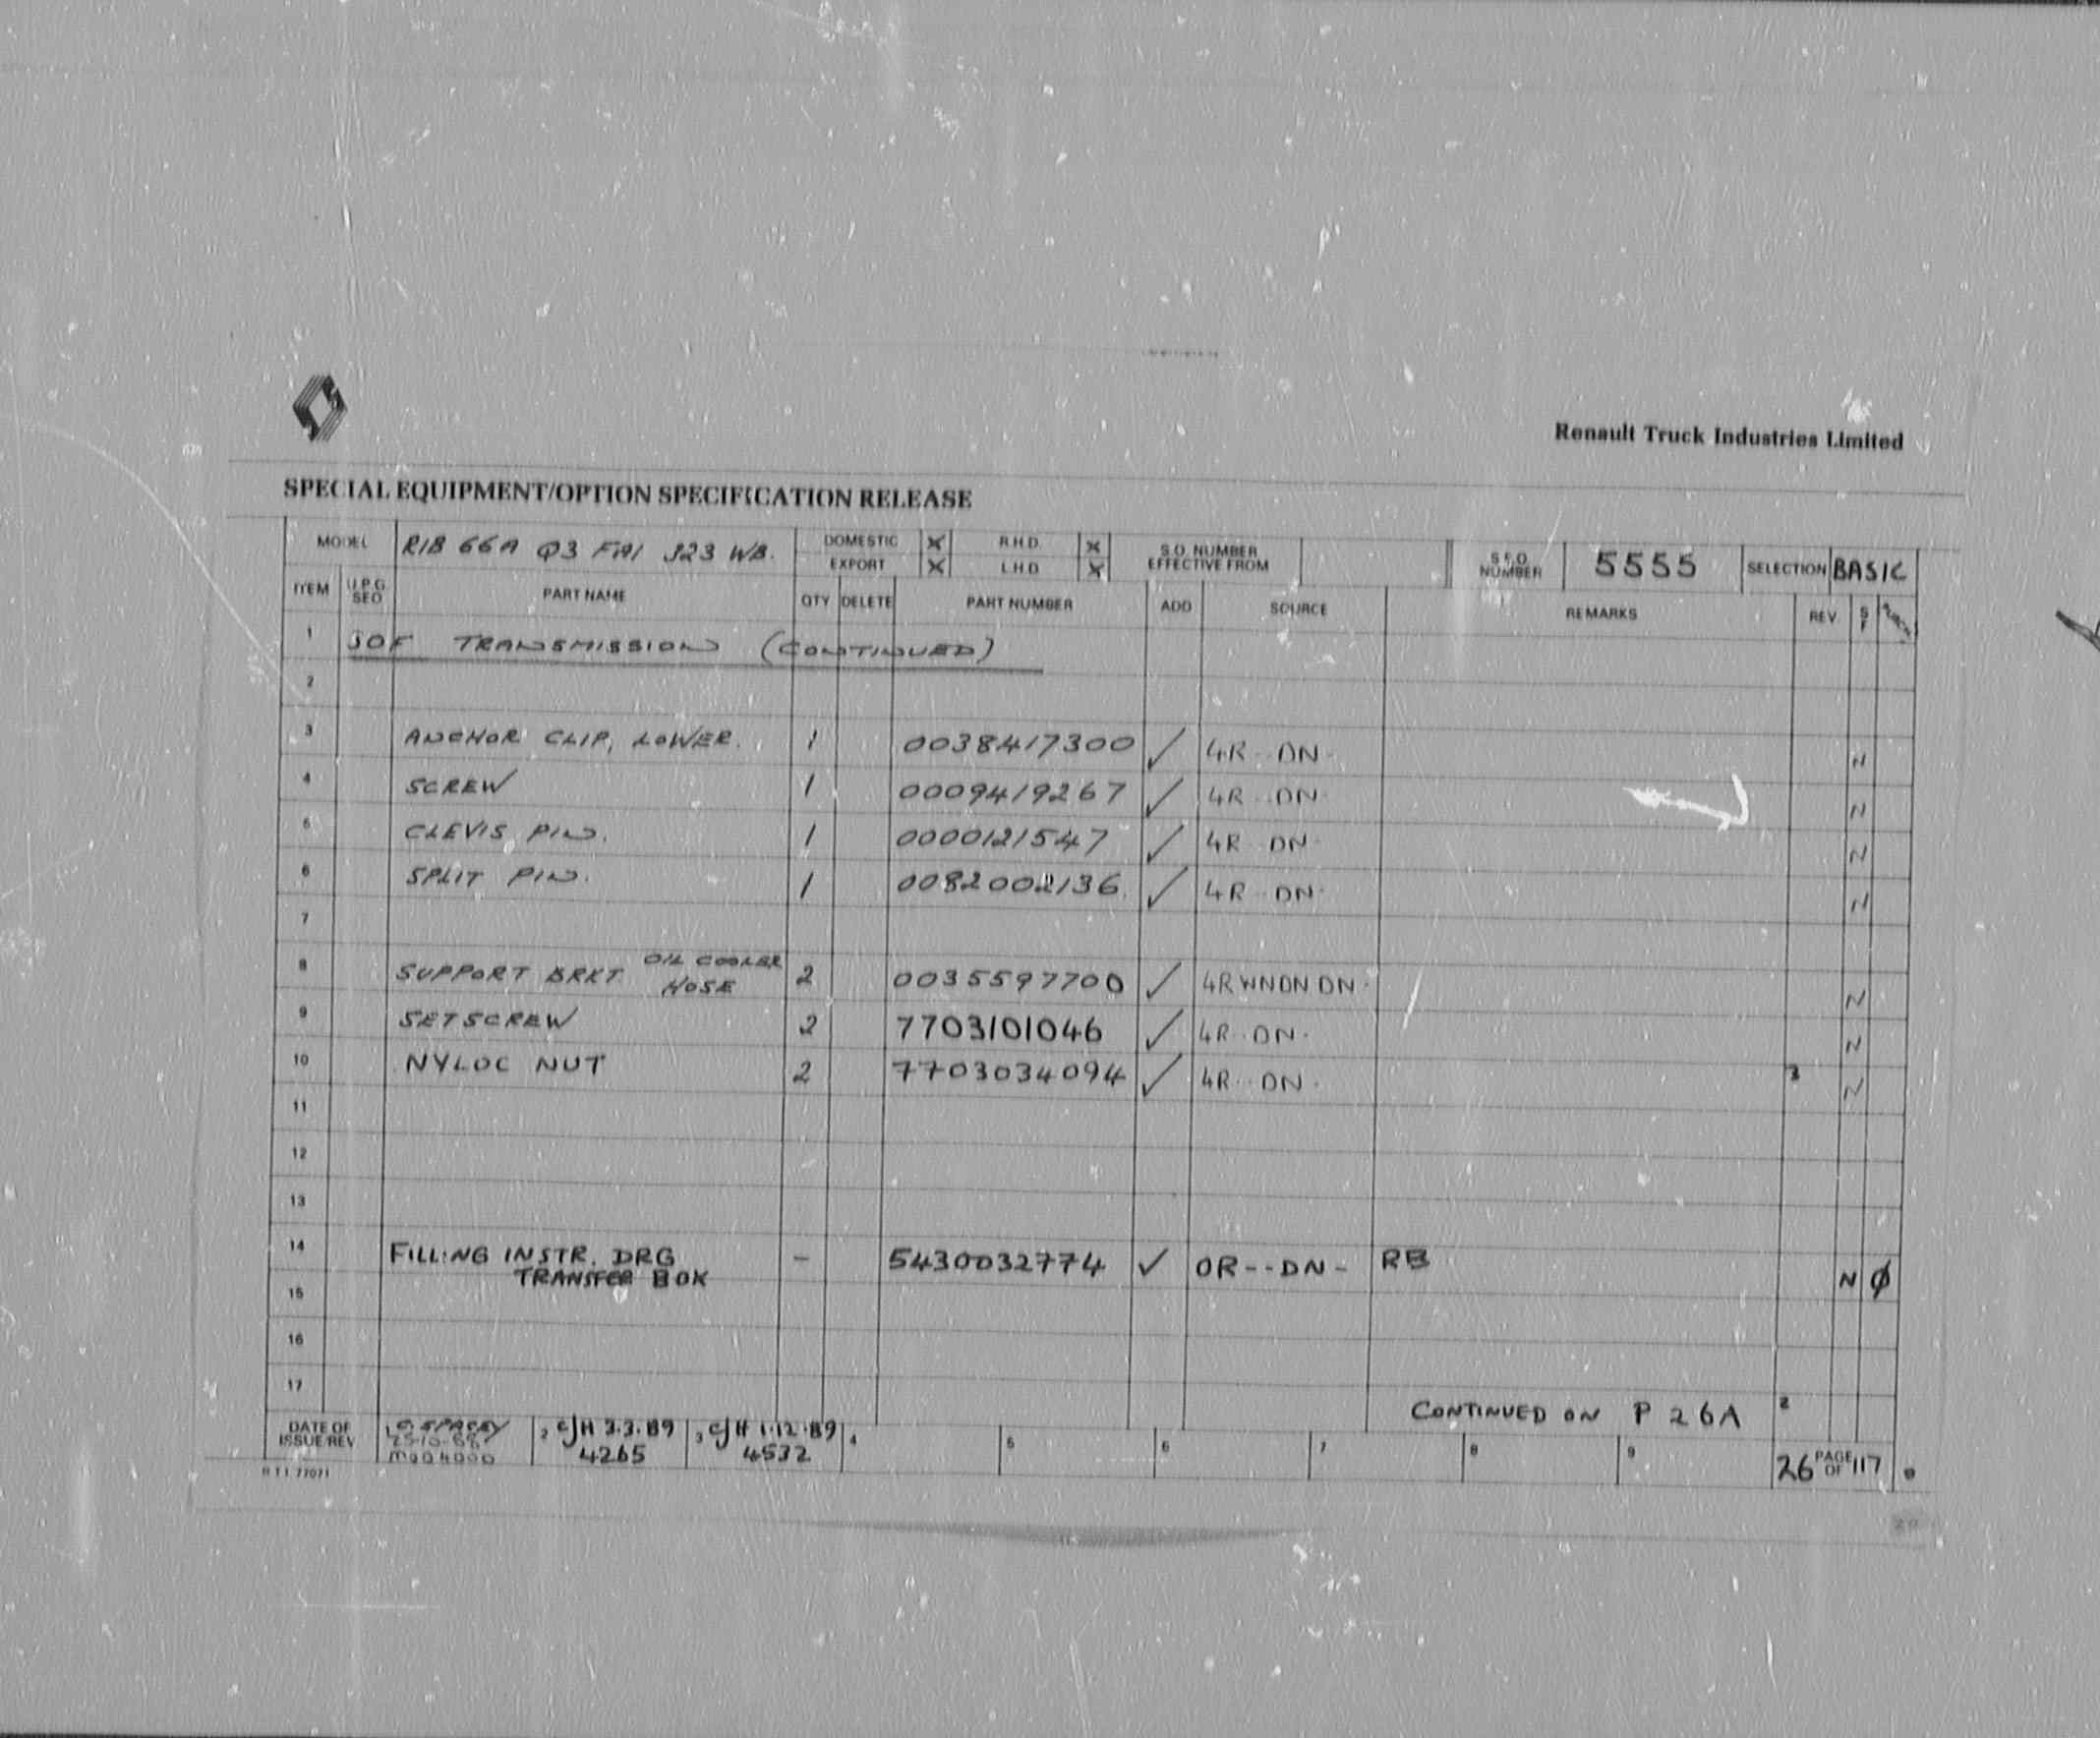 Renault Truck Industries Limited
SPECIAL EQUIPMENT/OPTION SPECIFICATION RELEASE
MODEL R1B 66A Q3 FA1 323 WB. DOMESTIC X R.H.D. X S.O. NUMBER EFFECTIVE FROM S.E.O NUMBER 5555 SELECTION BASIC
EXPORT X L.H.D X
ITEM U.P.G SEQ PART NAME QTY DELETE PART NUMBER ADD SOURCE REMARKS REV S F
1 30F TRANSMISSION (CONTINUED)
2
3 ANCHOR CLIP, LOWER. 1 0038417300 ✓ 4R--DN- N
4 SCREW 1 0009419267 ✓ 4R--DN- N
5 CLEVIS PIN. 1 0000121547 ✓ 4R--DN- N
6 SPLIT PIN. 1 0082002136 ✓ 4R--DN- N
7
8 SUPPORT BRKT. OIL COOLER HOSE 2 0035597700 ✓ 4RWNDNDN- N
9 SETSCREW 2 7703101046 ✓ 4R--DN- N
10 NYLOC NUT 2 7703034094 ✓ 4R--DN- 3 N
11
12
13
14 FILLING INSTR. DRG - 5430032774 ✓ OR--DN- RB N Ø
TRANSFER BOX
15
16
17
CONTINUED ON P 26A 2
DATE OF ISSUE/REV 1 C. SPACEY 25-10-88 M004000 2 CJH 3.3.89 4265 3 CJH 1.12.89 4532 4 5 6 7 8 9 26 PAGE OF 117
R T I 77071